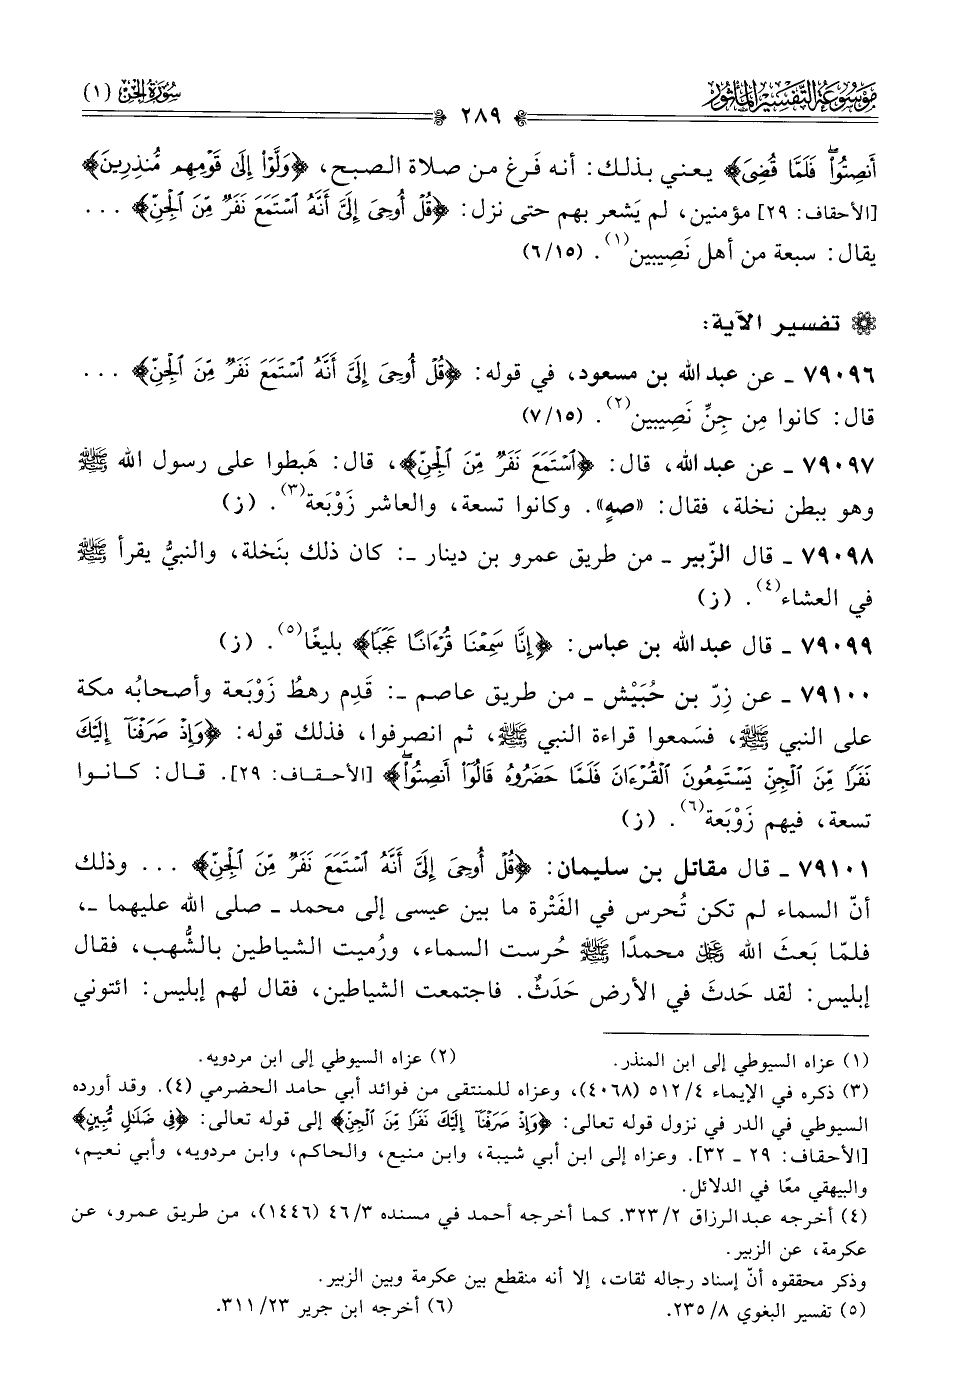 موسوعة التفسير المأثور
سورة الجن (١)
٢٨٩
أَنصِتُواْۖ فَلَمَّا قُضِىَ﴾ يعني بذلك: أنه فَرغ من صلاة الصبح، ﴿وَلَّوْاْ إِلَىٰ قَوْمِهِم مُّنذِرِينَ﴾
[الأحقاف: ٢٩] مؤمنين، لم يَشعر بهم حتى نزل: ﴿قُلْ أُوحِىَ إِلَىَّ أَنَّهُ ٱسْتَمَعَ نَفَرٌ مِّنَ ٱلْجِنِّ﴾ ...
يقال: سبعة من أهل نَصِيبين(١). (٦/١٥)
تفسير الآية:
٧٩٠٩٦ ـ عن عبد الله بن مسعود، في قوله: ﴿قُلْ أُوحِىَ إِلَىَّ أَنَّهُ ٱسْتَمَعَ نَفَرٌ مِّنَ ٱلْجِنِّ﴾ ...
قال: كانوا مِن جِنِّ نَصِيبين(٢). (٧/١٥)
٧٩٠٩٧ ـ عن عبد الله، قال: ﴿ٱسْتَمَعَ نَفَرٌ مِّنَ ٱلْجِنِّ﴾، قال: هَبطوا على رسول الله ﷺ
وهو ببطن نخلة، فقال: «صهٍ». وكانوا تسعة، والعاشر زَوْبَعة(٣). (ز)
٧٩٠٩٨ ـ قال الزّبير ـ من طريق عمرو بن دينار ـ: كان ذلك بنَخلة، والنبيُّ يقرأ ﷺ
في العشاء(٤). (ز)
٧٩٠٩٩ ـ قال عبد الله بن عباس: ﴿إِنَّا سَمِعْنَا قُرْءَانًا عَجَبًا﴾ بليغًا(٥). (ز)
٧٩١٠٠ ـ عن زِرّ بن حُبَيْش ـ من طريق عاصم ـ: قَدِم رهطُ زَوْبَعة وأصحابُه مكة
على النبي ﷺ، فسَمعوا قراءة النبي ﷺ، ثم انصرفوا، فذلك قوله: ﴿وَإِذْ صَرَفْنَآ إِلَيْكَ
نَفَرًا مِّنَ ٱلْجِنِّ يَسْتَمِعُونَ ٱلْقُرْءَانَ فَلَمَّا حَضَرُوهُ قَالُوٓاْ أَنصِتُواْۖ﴾ [الأحقاف: ٢٩]. قال: كانوا
تسعة، فيهم زَوْبَعة(٦). (ز)
٧٩١٠١ ـ قال مقاتل بن سليمان: ﴿قُلْ أُوحِىَ إِلَىَّ أَنَّهُ ٱسْتَمَعَ نَفَرٌ مِّنَ ٱلْجِنِّ﴾ ... وذلك
أنّ السماء لم تكن تُحرس في الفَتْرة ما بين عيسى إلى محمد ـ صلى الله عليهما ـ،
فلمّا بَعثَ الله ﷿ محمدًا ﷺ حُرست السماء، ورُميت الشياطين بالشُّهب، فقال
إبليس: لقد حَدثَ في الأرض حَدَثٌ. فاجتمعت الشياطين، فقال لهم إبليس: ائتوني
(١) عزاه السيوطي إلى ابن المنذر.
(٢) عزاه السيوطي إلى ابن مردويه.
(٣) ذكره في الإيماء ٥١٢/٤ (٤٠٦٨)، وعزاه للمنتقى من فوائد أبي حامد الحضرمي (٤). وقد أورده
السيوطي في الدر في نزول قوله تعالى: ﴿وَإِذْ صَرَفْنَآ إِلَيْكَ نَفَرًا مِّنَ ٱلْجِنِّ﴾ إلى قوله تعالى: ﴿فِى ضَلَٰلٍ مُّبِينٍ﴾
[الأحقاف: ٢٩ ـ ٣٢]. وعزاه إلى ابن أبي شيبة، وابن منيع، والحاكم، وابن مردويه، وأبي نعيم،
والبيهقي معًا في الدلائل.
(٤) أخرجه عبد الرزاق ٣٢٣/٢. كما أخرجه أحمد في مسنده ٤٦/٣ (١٤٤٦)، من طريق عمرو، عن
عكرمة، عن الزبير.
وذكر محققوه أنّ إسناد رجاله ثقات، إلا أنه منقطع بين عكرمة وبين الزبير.
(٥) تفسير البغوي ٢٣٥/٨.
(٦) أخرجه ابن جرير ٣١١/٢٣.